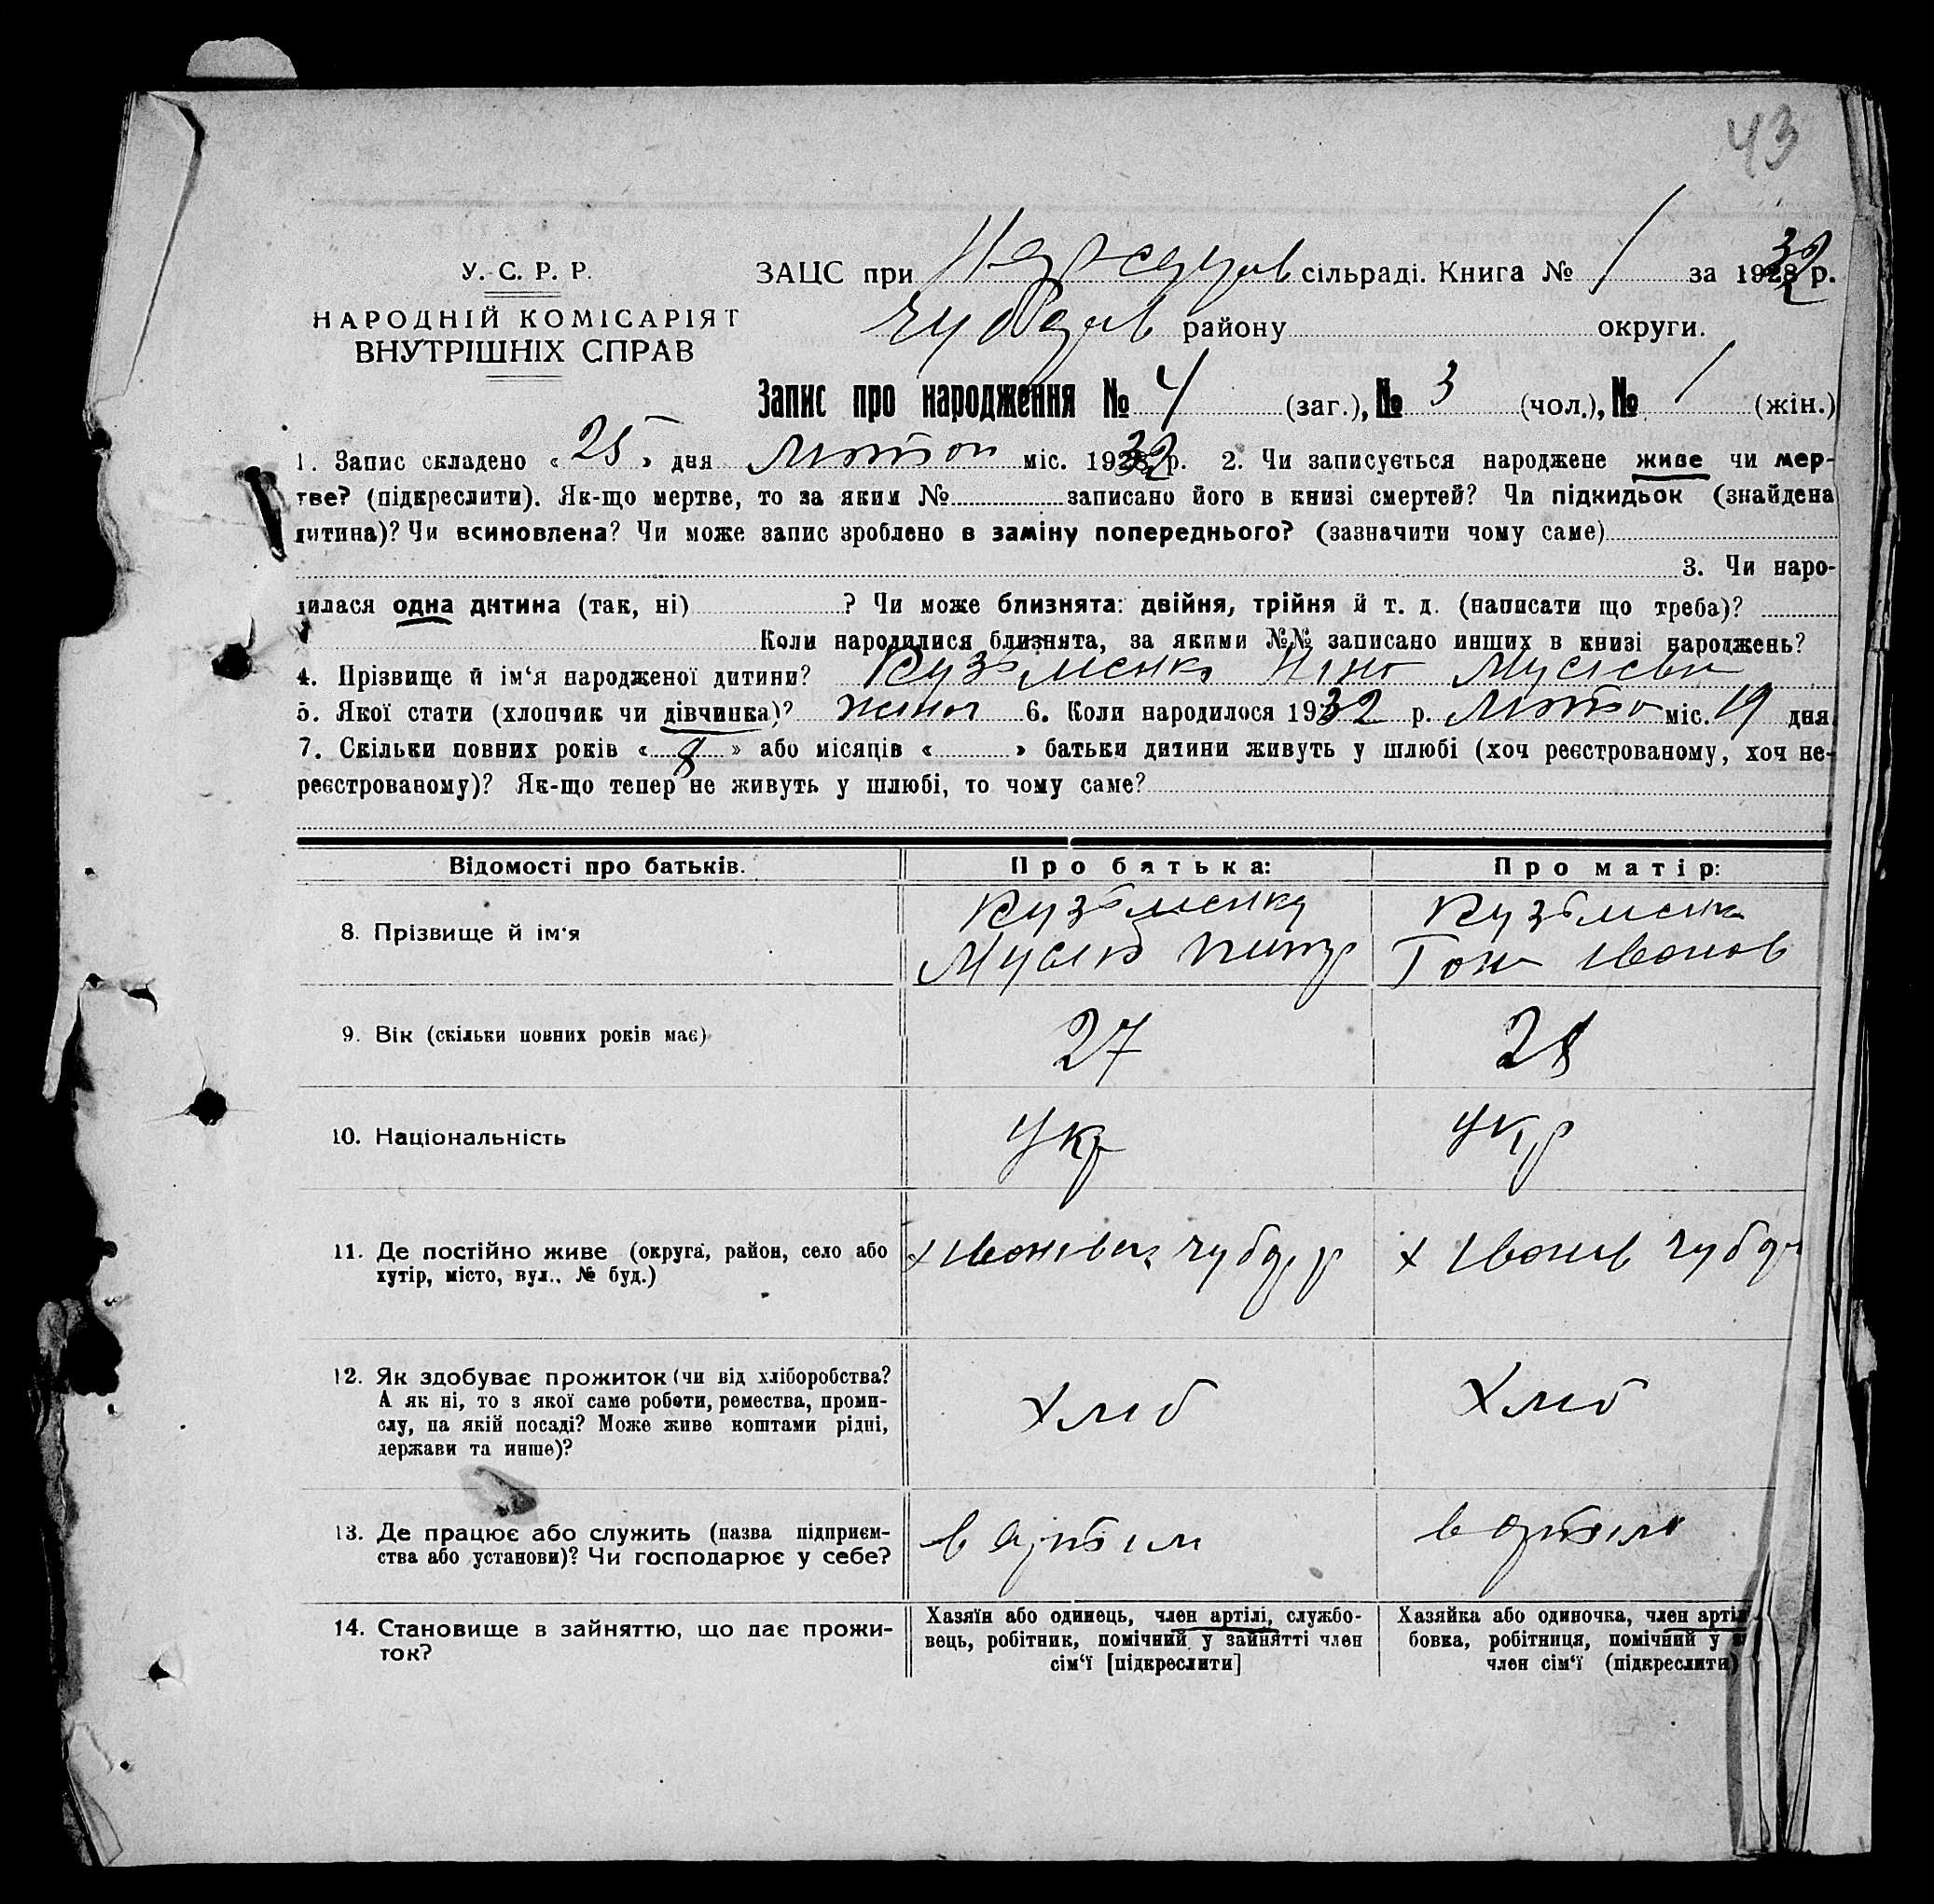 43
У. С. Р. Р.
НАРОДНІЙ КОМІСАРІЯТ
ВНУТРІШНІХ СПРАВ
ЗАЦС при сільраді. Книга № 1 за 1932 р.
Чубарів району округи.
Запис про народження № 4 (заг.), № 3 (чол.), № 1 (жін.)
1. Запис складено « 25 » дня міс. 1932 р. 2. Чи записується народжене живе чи мер-
тве? (підкреслити). Як-що мертве, то за яким № записано його в книзі смертей? Чи підкидьок (знайдена
дитина)? Чи всиновлена? Чи може запис зроблено в заміну попереднього? (зазначити чому саме)
3. Чи наро-
дилася одна дитина (так, ні) ? Чи може близнята: двійня, трійня й т. д. (написати що треба)?
Коли народилися близнята, за якими №№ записано инших в книзі народжень?
4. Прізвище й ім‘я народженої дитини? Кузьменко Мусієвн
5. Якої стати (хлопчик чи дівчинка)? жіноч 6. Коли народилося 1932 р. міс. 19 дня.
7. Скільки повних років « 8 » або місяців « » батьки дитини живуть у шлюбі (хоч реєстрованому, хоч не-
реєстрованому)? Як-що тепер не живуть у шлюбі, то чому саме?
Відомості про батьків. Про батька: Про матір:
8. Прізвище й ім‘я Кузьменко Кузьменко
Мусій Іванов
9. Вік (скільки повних років має) 27 28
10. Національність Укр Укр
11. Де постійно живе (округа, район, село або
хутір, місто, вул., № буд.) х Іванів х Іванів
12. Як здобуває прожиток (чи від хліборобства?
А як ні, то з якої саме роботи, ремества, проми-
слу, на якій посаді? Може живе коштами рідні,
держави та инше)? Хліб Хліб
13. Де працює або служить (назва підприєм-
ства або установи)? Чи господарює у себе? в артіли в артіли
14. Становище в зайняттю, що дає прожи-
ток?
Хазяїн або одинець, член артілі, службо-
вець, робітник, помічний у зайнятті член
сім‘ї [підкреслити]
Хазяйка або одиночка, член артіл
бовка, робітниця, помічний у
член сім‘ї (підкреслити)